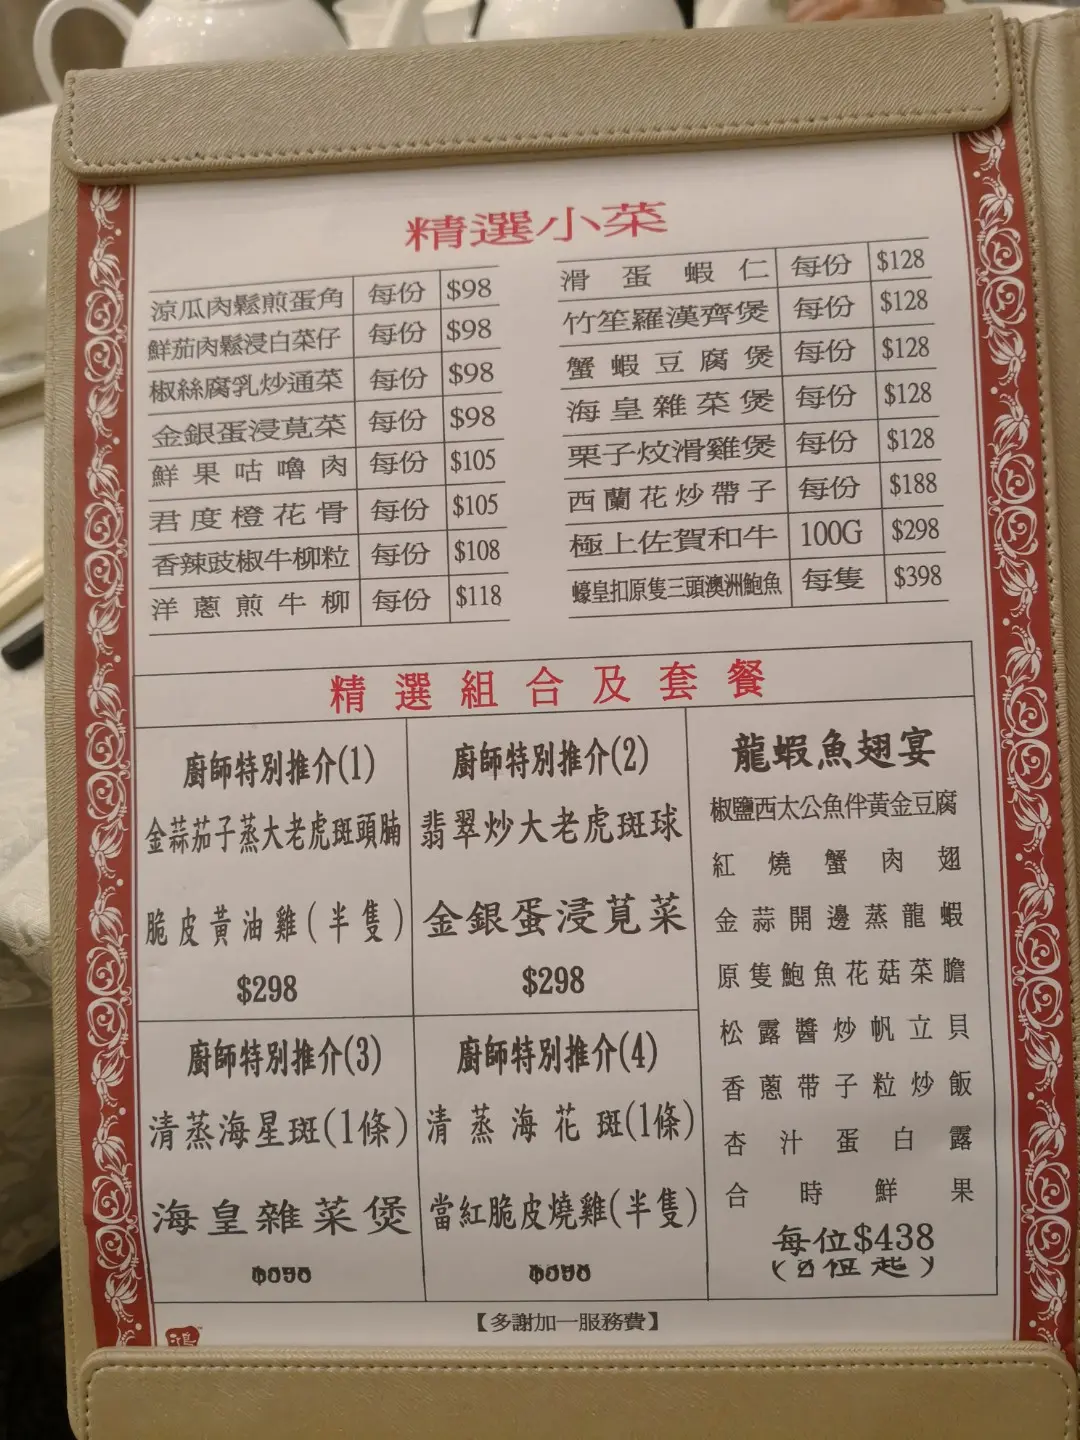 精選小菜
涼瓜肉鬆煎蛋角 每份 $98
鮮茄肉鬆浸白菜仔 每份 $98
椒絲腐乳炒通菜 每份 $98
金銀蛋浸莧菜 每份 $98
鮮果咕嚕肉 每份 $105
君度橙花骨 每份 $105
香辣豉椒牛柳粒 每份 $108
洋蔥煎牛柳 每份 $118
滑蛋蝦仁 每份 $128
竹笙羅漢齊煲 每份 $128
蟹蝦豆腐煲 每份 $128
海皇雜菜煲 每份 $128
栗子炆滑雞煲 每份 $128
西蘭花炒帶子 每份 $188
極上佐賀和牛 100G $298
蠔皇扣原隻三頭澳洲鮑魚 每隻 $398
精選組合及套餐
廚師特別推介(1)
金蒜茄子蒸大老虎斑頭腩
脆皮黃油雞(半隻)
$298
廚師特別推介(2)
翡翠炒大老虎斑球
金銀蛋浸莧菜
$298
廚師特別推介(3)
清蒸海星斑(1條)
海皇雜菜煲
廚師特別推介(4)
清蒸海花斑(1條)
當紅脆皮燒雞(半隻)
龍蝦魚翅宴
椒鹽西太公魚伴黃金豆腐
紅燒蟹肉翅
金蒜開邊蒸龍蝦
原隻鮑魚花菇菜膽
松露醬炒帆立貝
香蔥帶子粒炒飯
杏汁蛋白露
合時鮮果
每位$438
位起)
【多謝加一服務費】